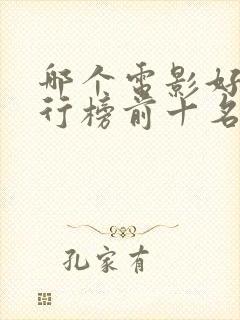 哪个电影好
行榜前十名
孔家有